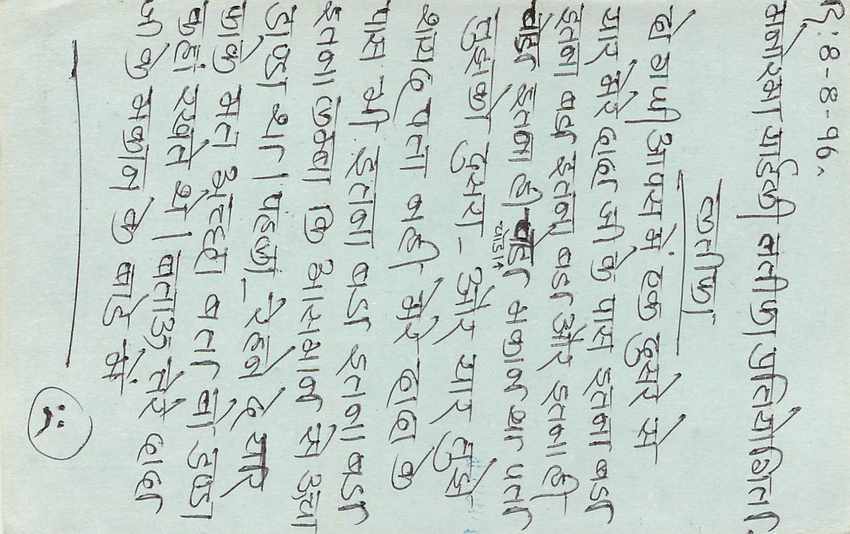 R: 8-8-96.
मनोरमा लतीफा प्रतियोगिता
लतीफा
दो गप्पी आपस में एक दुसरे से
यार मेरे दादा जी के पास इतना बडा
इतना बडा इतना बडा और इतना ही
इतना ही चौडा मकान था पता
दुसरा - और यार तुझे
शायद पता नही मेरे दादा के
पास भी इतना बडा इतना बडा
इतना लम्बा कि आसमान से ऊंचा
डण्डा था। पहला - रेहने दे यार
फांक मत अच्छा बता वो डण्डा
कहां रखते थे। बताऊ तेरे दादा
जी के मकान के बाडे में